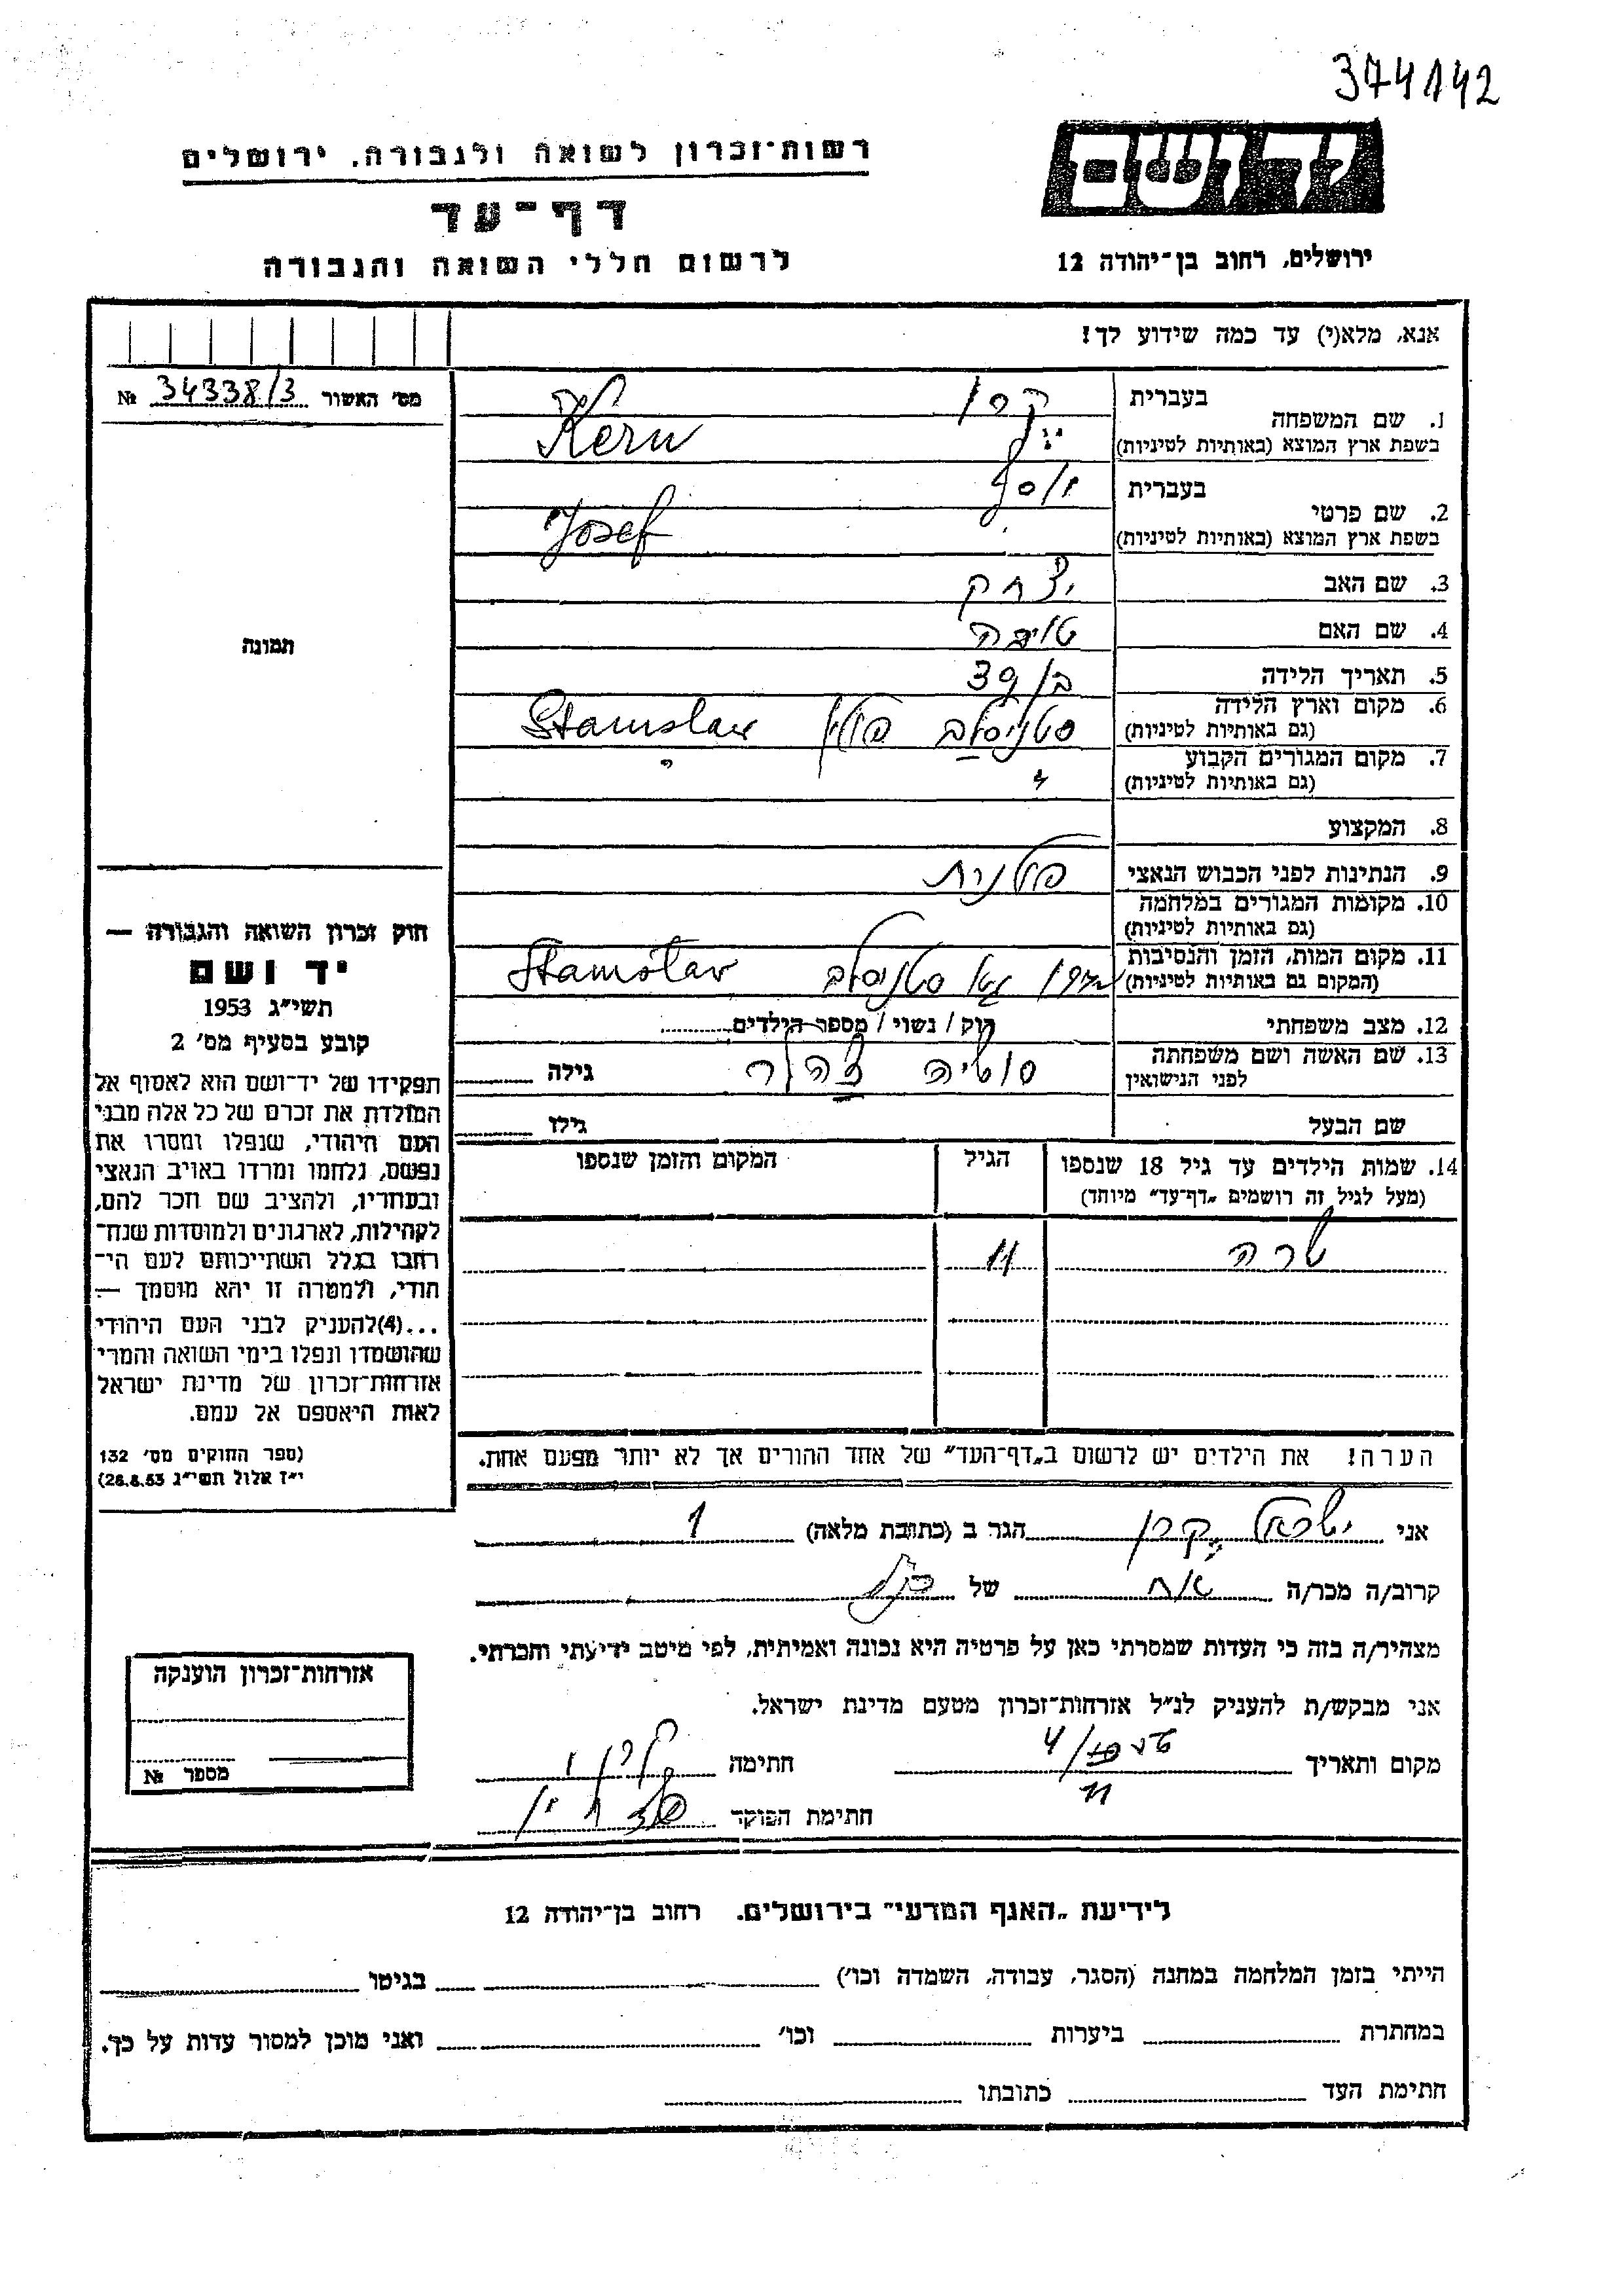 374142
יד ושם
ירושלים, רחוב בן־יהודה 12
רשות־זכרון לשואה ולגבורה, ירושלים
דף־עד
לרשום חללי השואה והגבורה
אנא, מלא(י) עד כמה שידוע לך!
מס׳ האשור 34338/3 №
תמונה
1. שם המשפחה
בעברית קרן
בשפת ארץ המוצא (באותיות לטיניות) Kern
2. שם פרטי
בעברית יוסף
בשפת ארץ המוצא (באותיות לטיניות) Josef
3. שם האב יצחק
4. שם האם טויבה
5. תאריך הלידה בן 39
6. מקום וארץ הלידה סטניסלב פולין Stanislav
(גם באותיות לטיניות)
7. מקום המגורים הקבוע " "
(גם באותיות לטיניות)
8. המקצוע
9. הנתינות לפני הכבוש הנאצי פולנית
10. מקומות המגורים במלחמה
(גם באותיות לטיניות)
11. מקום המות, הזמן והנסיבות סטניסלב Stanislav
(המקום גם באותיות לטיניות)
12. מצב משפחתי רוק / נשוי / מספר הילדים
13. שם האשה ושם משפחתה גילה
לפני הנישואין
שם הבעל גילו
14. שמות הילדים עד גיל 18 שנספו הגיל המקום והזמן שנספו
(מעל לגיל זה רושמים „דף־עד” מיוחד)
שרה 11
הערה! את הילדים יש לרשום ב„דף־העד” של אחד ההורים אך לא יותר מפעם אחת.
חוק זכרון השואה והגבורה —
יד ושם
תשי״ג 1953
קובע בסעיף מס׳ 2
תפקידו של יד־ושם הוא לאסוף אל
המולדת את זכרם של כל אלה מבני
העם היהודי, שנפלו ומסרו את
נפשם, נלחמו ומרדו באויב הנאצי
ובעוזריו, ולהציב שם וזכר להם,
לקהילות, לארגונים ולמוסדות שנח־
רבו בגלל השתייכותם לעם הי־
הודי, ולמטרה זו יהא מוסמך —
...(4)להעניק לבני העם היהודי
שהושמדו ונפלו בימי השואה והמרי
אזרחות־זכרון של מדינת ישראל
לאות היאספם אל עמם.
(ספר החוקים מס׳ 132
י״ז אלול תשי״ג 28.8.53)
אני ישראל קרן הגר ב (כתובת מלאה)
קרוב/ה מכר/ה אח של
מצהיר/ה בזה כי העדות שמסרתי כאן על פרטיה היא נכונה ואמיתית, לפי מיטב ידיעתי והכרתי.
אני מבקש/ת להעניק לנ״ל אזרחות־זכרון מטעם מדינת ישראל.
מקום ותאריך חתימה
חתימת הפוקד
אזרחות־זכרון הוענקה
מספר №
לידיעת „האגף המדעי” בירושלים. רחוב בן־יהודה 12
הייתי בזמן המלחמה במחנה (הסגר, עבודה, השמדה וכו׳) בגיטו
במחתרת ביערות וכו׳ ואני מוכן למסור עדות על כך.
חתימת העד כתובתו